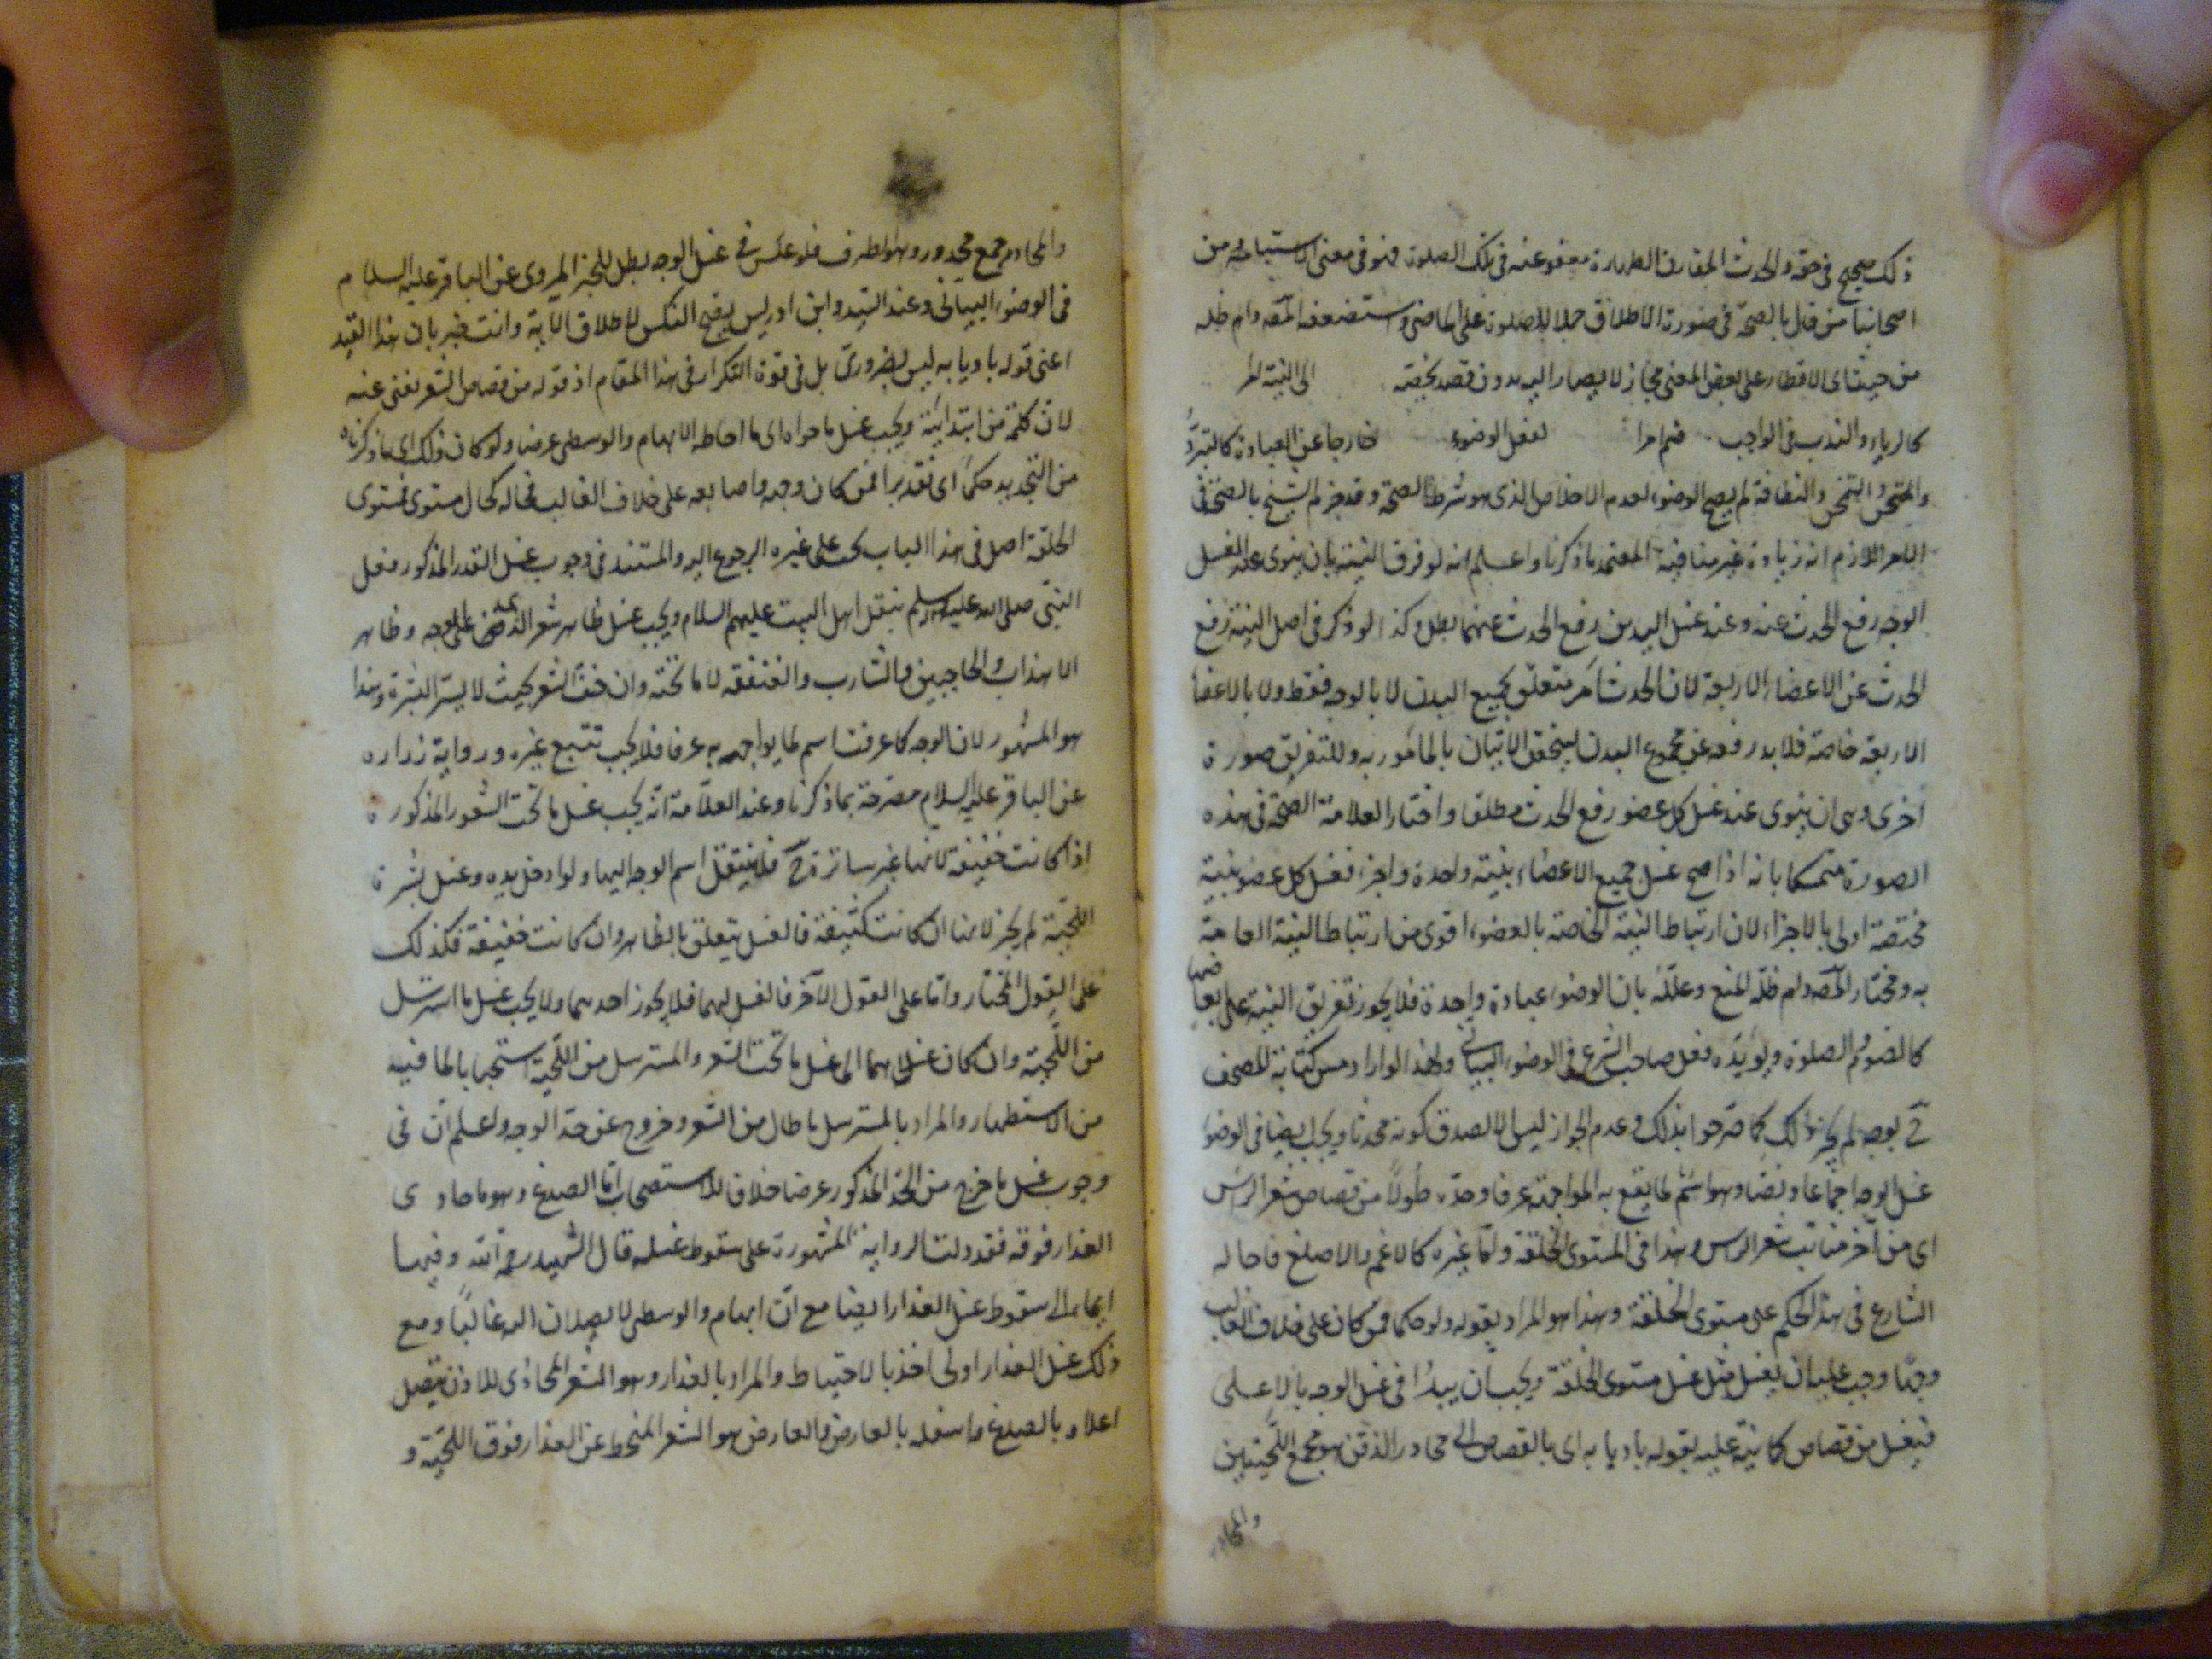 ذلك صحيح في حقه والحدث المقارن الطهارة معفو عنه في تلك الصلوة فنوى في معنى الاستباحة من
اصحابنا من قال بالصحة في صورة الاطلاق حملا للصلوة على الماضي واستضعفه المصه دام ظله
من حيث ان الاقتصار على بعض المعنى مجاز لا يصار اليه بدون قصد يخصه الى النية
كالرياء والندب في الواجب ضم امرا لفعل الوضوء خارجا عن العبادة كالتبرد
والتسخن والنظافة لم يصح الوضوء لعدم الاخلاص الذي هو شرط الصحة وقد جزم الشيخ بالصحة في
الامر اللازم انه زيادة غير منافية المعتمد ما ذكرنا واعلم انه لو فرق النية بان ينوى عند غسل
الوجه رفع الحدث عنه وعند غسل اليدين رفع الحدث عنهما بطل وكذا لو ذكر في اصل النية رفع
الحدث عن الاعضاء الاربعة لان الحدث امر متعلق بجميع البدن لا بالوجه فقط ولا بالاعضا
الاربعة خاصة فلا بد رفعه عن مجموع البدن ليتحقق الاتيان بالمأمور به وللتفريق صورة
اخرى وهي ان ينوى عند غسل كل عضو رفع الحدث مطلقا واختار العلامة الصحة في هذه
الصورة متمسكا بانه اذا صح غسل جميع الاعضاء بنية واحدة واجزء فغسل كل عضو بنية
مختصة اولى بالاجزاء لان ارتباط النية الخاصة بالعضو اقوى من ارتباط النية العامة
به ومختار المصه دام ظله المنع وعلله بان الوضوء عبادة واحدة فلا يجوز تفريق النية على ابعاضها
كالصوم الصلوة ويؤيده فعل صاحب الشرع في الوضوء البياني ولهذا لو اراد مس كتابة المصحف
لم يجز ذلك كما صرحوا بذلك وعدم الجواز ليس الا لصدق كونه محدثا ويجب ايضا في الوضوء
غسل الوجه اجماعا ونصا وهو اسم لما يقع به المواجهة عرفا وحده طولا من قصاص شعر الراس
اى من آخر منابت شعر الراس وهذا في المستوى الخلقة واما غيره كالاغم والاصلع فاحاله
الشارع في هذا الحكم على مستوى الخلقة وهذا هو المراد بقوله ولو حكما فمن كان على خلاف الغالب
وجها وجب عليه ان يغسل مثل غسل مستوى الخلقة ويجب ان يبدأ في غسل الوجه بالاعلى
فيغسل من قصاص كما نبه عليه بقوله باديا به اى بالقصاص الى محادر الذقن هو مجمع اللحيتين
والمحادر
والمحادر جمع محدور وهو الطرف فلو عكس في غسل الوجه بطل للخبر المروى عن الباقر عليه السلام
في الوضوء البياني وعند السيد وابن ادريس يصح النكس لاطلاق الآية وانت خبير بان هذا القيد
اعنى قوله باديا به ليس بضروري بل في قوة التكرار في هذا المقام اذ قوله من قصاص الشعر يغنى عنه
لان كلمة من ابتدائية ويجب غسل ما حواه اى ما احاطه الابهام والوسطى عرضا ولو كان ذلك اى ما ذكرناه
من التحديد حكما اى تقديرا فمن كان وجهه واصابعه على خلاف الغالب فحاله كحال مستوى فمستوى
الخلقة اصل في هذا الباب يجب على غيره الرجوع اليه والمستند في وجوب غسل القدر المذكور فعل
النبي صلى الله عليه وسلم بنقل اهل البيت عليهم السلام ويجب غسل ظاهر شعر الذقن على الوجه وظاهر
الاهداب والحاجبين والشارب والعنفقة لا ما تحته وان خف الشعر بحيث لا يستر البشرة وهذا
هو المشهور لان الوجه كما عرفت اسم لما يواجه به عرفا فلا يجب تتبع غيره ورواية زراره
عن الباقر عليه السلام مصرحة بما ذكرنا وعند العلامة انه يجب غسل ما تحت الشعور المذكورة
اذا كانت خفيفة لانها غير ساترة ح فلا ينتقل اسم الوجه اليها ولو ادخل يده وغسل بشرة
اللحية لم يجز لانها ان كانت كثيفة فالغسل يتعلق بالظاهر وان كانت خفيفة فكذلك
على القول المختار واما على القول الآخر فالغسل لهما فلا يجوز احدهما ولا يجب غسل ما استرسل
من اللحية وان كان غسلهما اى غسل ما تحت الشعر والمسترسل من اللحية مستحبا لما فيه
من الاستظهار والمراد بالمسترسل ما طال من الشعر وخرج عن حد الوجه واعلم ان في
وجوب غسل ما خرج من الحد المذكور عرضا خلاف للاستصحاب اما الصدغ وهو ما حاذى
العذار فوقه فقد دلت الرواية المشهورة على سقوط غسله قال الشهيد رحمه الله وفيها
ايماء الى سقوط غسل العذار ايضا مع ان ابهام والوسطى لا يصلان اليه غالبا ومع
ذلك غسل العذار اولى اخذ بالاحتياط والمراد بالعذار وهو الشعر المحاذى للاذن يتصل
اعلاه بالصدغ واسفله بالعارض والعارض هو الشعر المنحط عن العذار فوق اللحية و